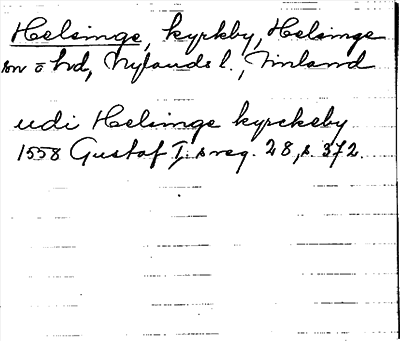 Helsinge, kyrkby, Helsinge
sn o hd, Nylands l., Finland
udi Helsinge kyrckeby
1558 Gustaf I:s reg. 28, s. 372.